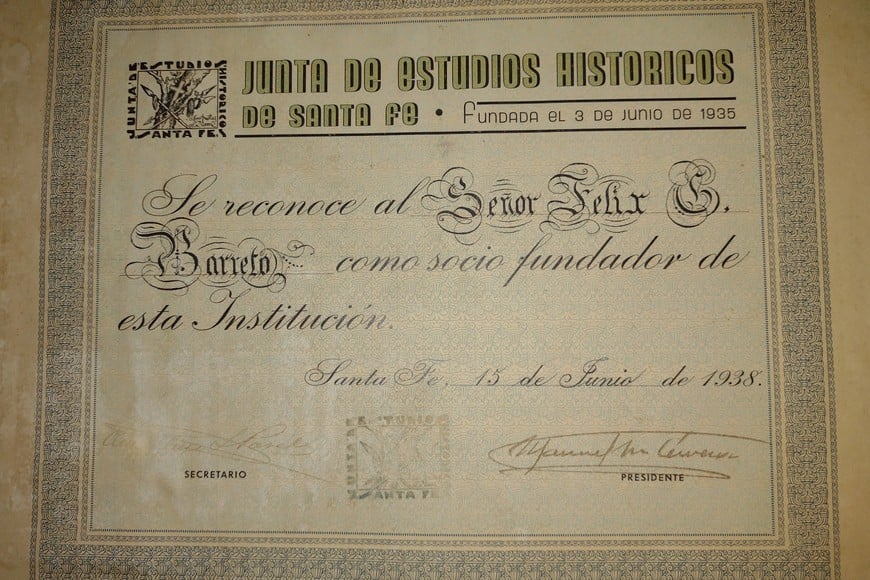 JUNTA DE ESTUDIOS HISTORICOS
SANTA FE
JUNTA DE ESTUDIOS HISTORICOS
DE SANTA FE • FUNDADA EL 3 DE JUNIO DE 1935
Se reconoce al Señor Felix G.
Barreto como socio fundador de
esta Institución.
Santa Fe, 15 de Junio de 1938.
JUNTA DE ESTUDIOS
SANTA FE
SECRETARIO
Manuel M. Cervera
PRESIDENTE